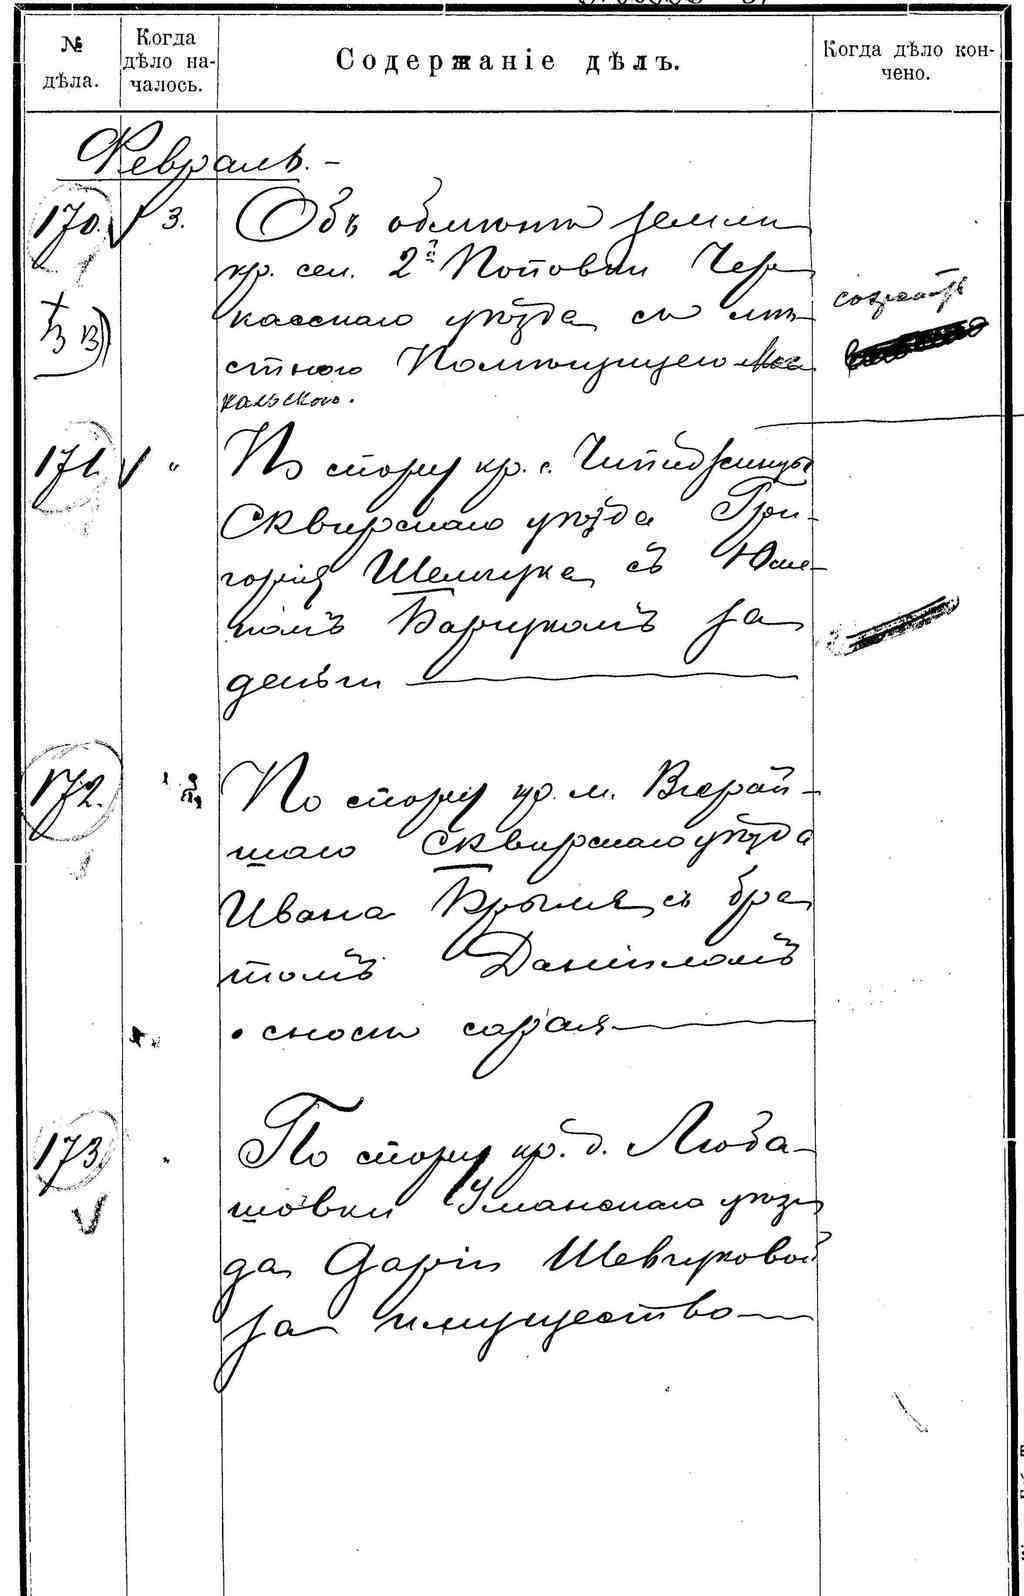 № дѣла.
Когда дѣло началось.
Содержаніе дѣлъ.
Когда дѣло кончено.
Февраль.-
170. 3. Объ обмѣнѣ земли
кр. сел. 2й Поповки Чер
касскаго уѣзда съ мѣ
стного Помѣщицею
кальского.
171. " По спору кр. с.
Сквирскаго уѣзда Гри-
горія Шемчука съ
Барчукомъ за
деньги
172. По спору кр. м. Вчерай-
шаго Сквирскаго уѣзда
Ивана съ бра
томъ Даніиломъ
о сносѣ сарая
173 " По спору кр. д. Люба-
шовки Уманскаго уѣз
да Даріи Шевчуковой
за имущество